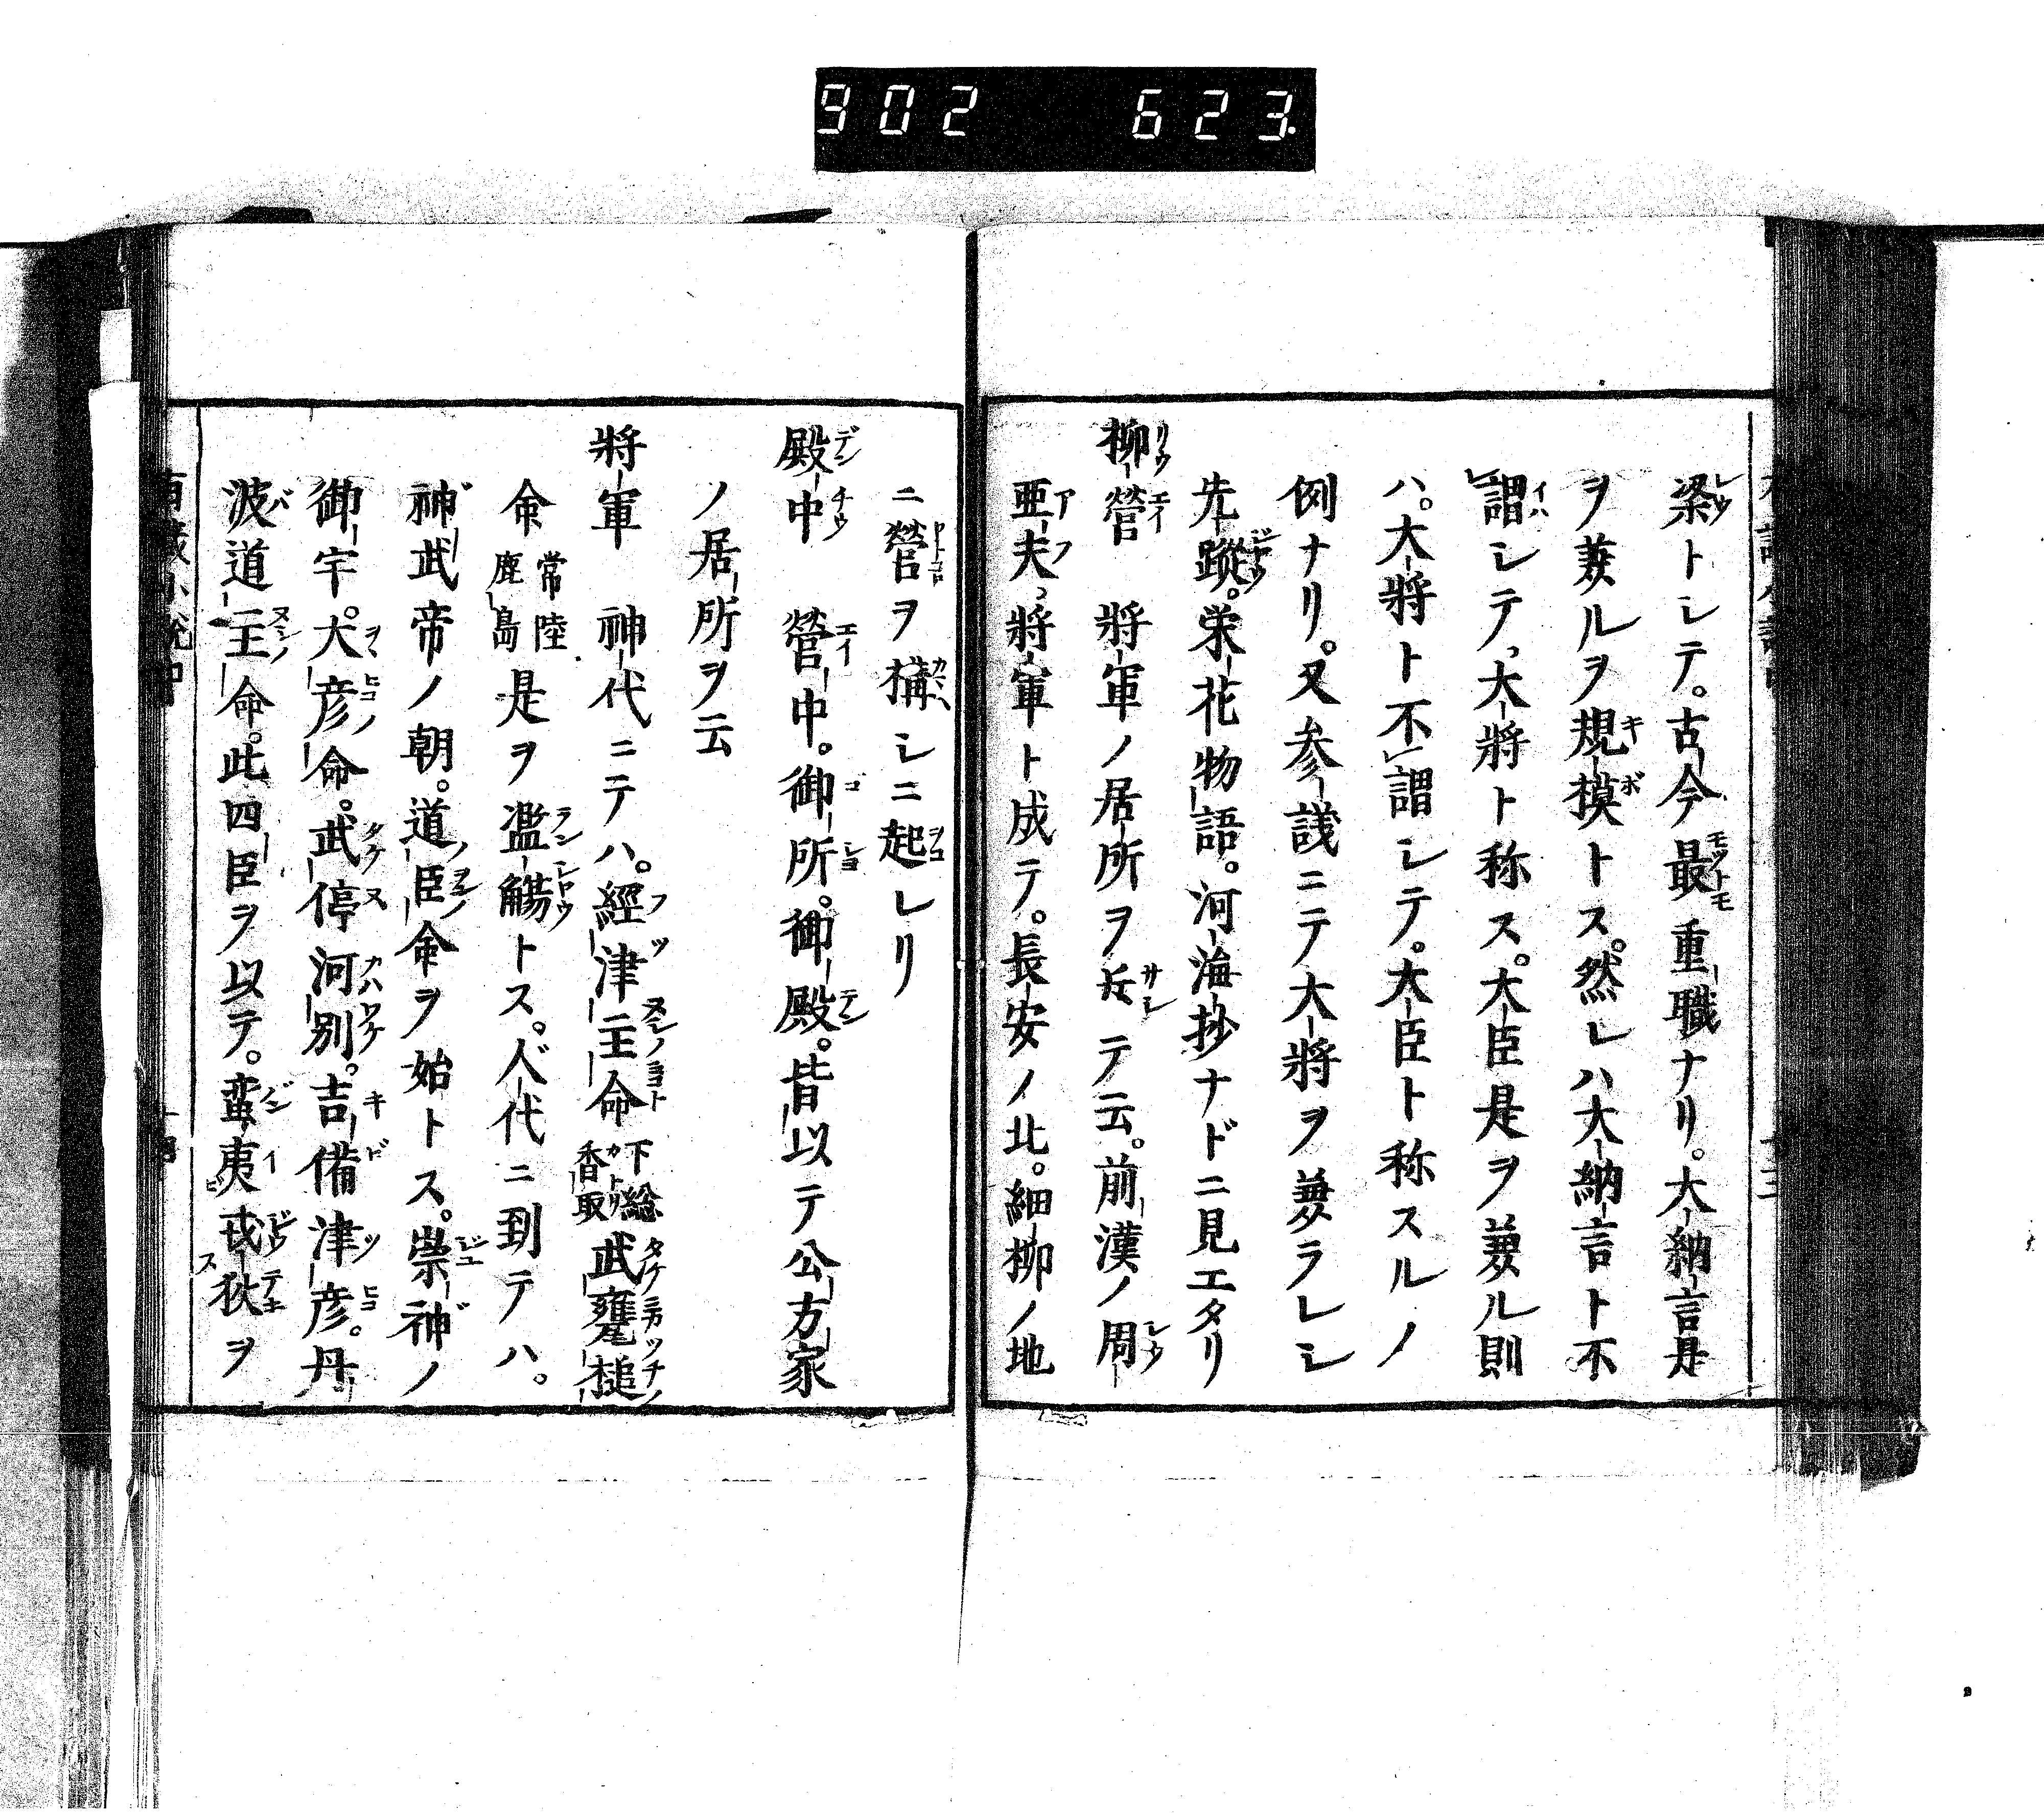 902 623.
梁トシテ。古今最重職ナリ。大納言是
ヲ兼ルヲ規模トス。然レハ大納言ト不
謂シテ、大將ト称ス。大臣是ヲ兼ル則
ハ。大將ト不謂シテ。大臣ト称スルノ
例ナリ。又参議ニテ大將ヲ兼ラレシ
先蹤。栄花物語。河海抄ナドニ見エタリ
柳營 將軍ノ居所ヲ斥テ云。前漢ノ周
亜夫、將軍ト成テ。長安ノ北。細柳ノ地
ニ營ヲ構シニ起レリ
殿中 營中。御所。御殿。皆以テ公方家
ノ居所ヲ云
將軍 神代ニテハ。經津主命下総香取武甕槌
命常陸鹿島是ヲ濫觴トス。人代ニ到テハ。
神武帝ノ朝。道臣命ヲ始トス。崇神ノ
御宇。大彦命。武停河別。吉備津彦。丹
波道主命。此四臣ヲ以テ。蛮夷戎狄ヲ